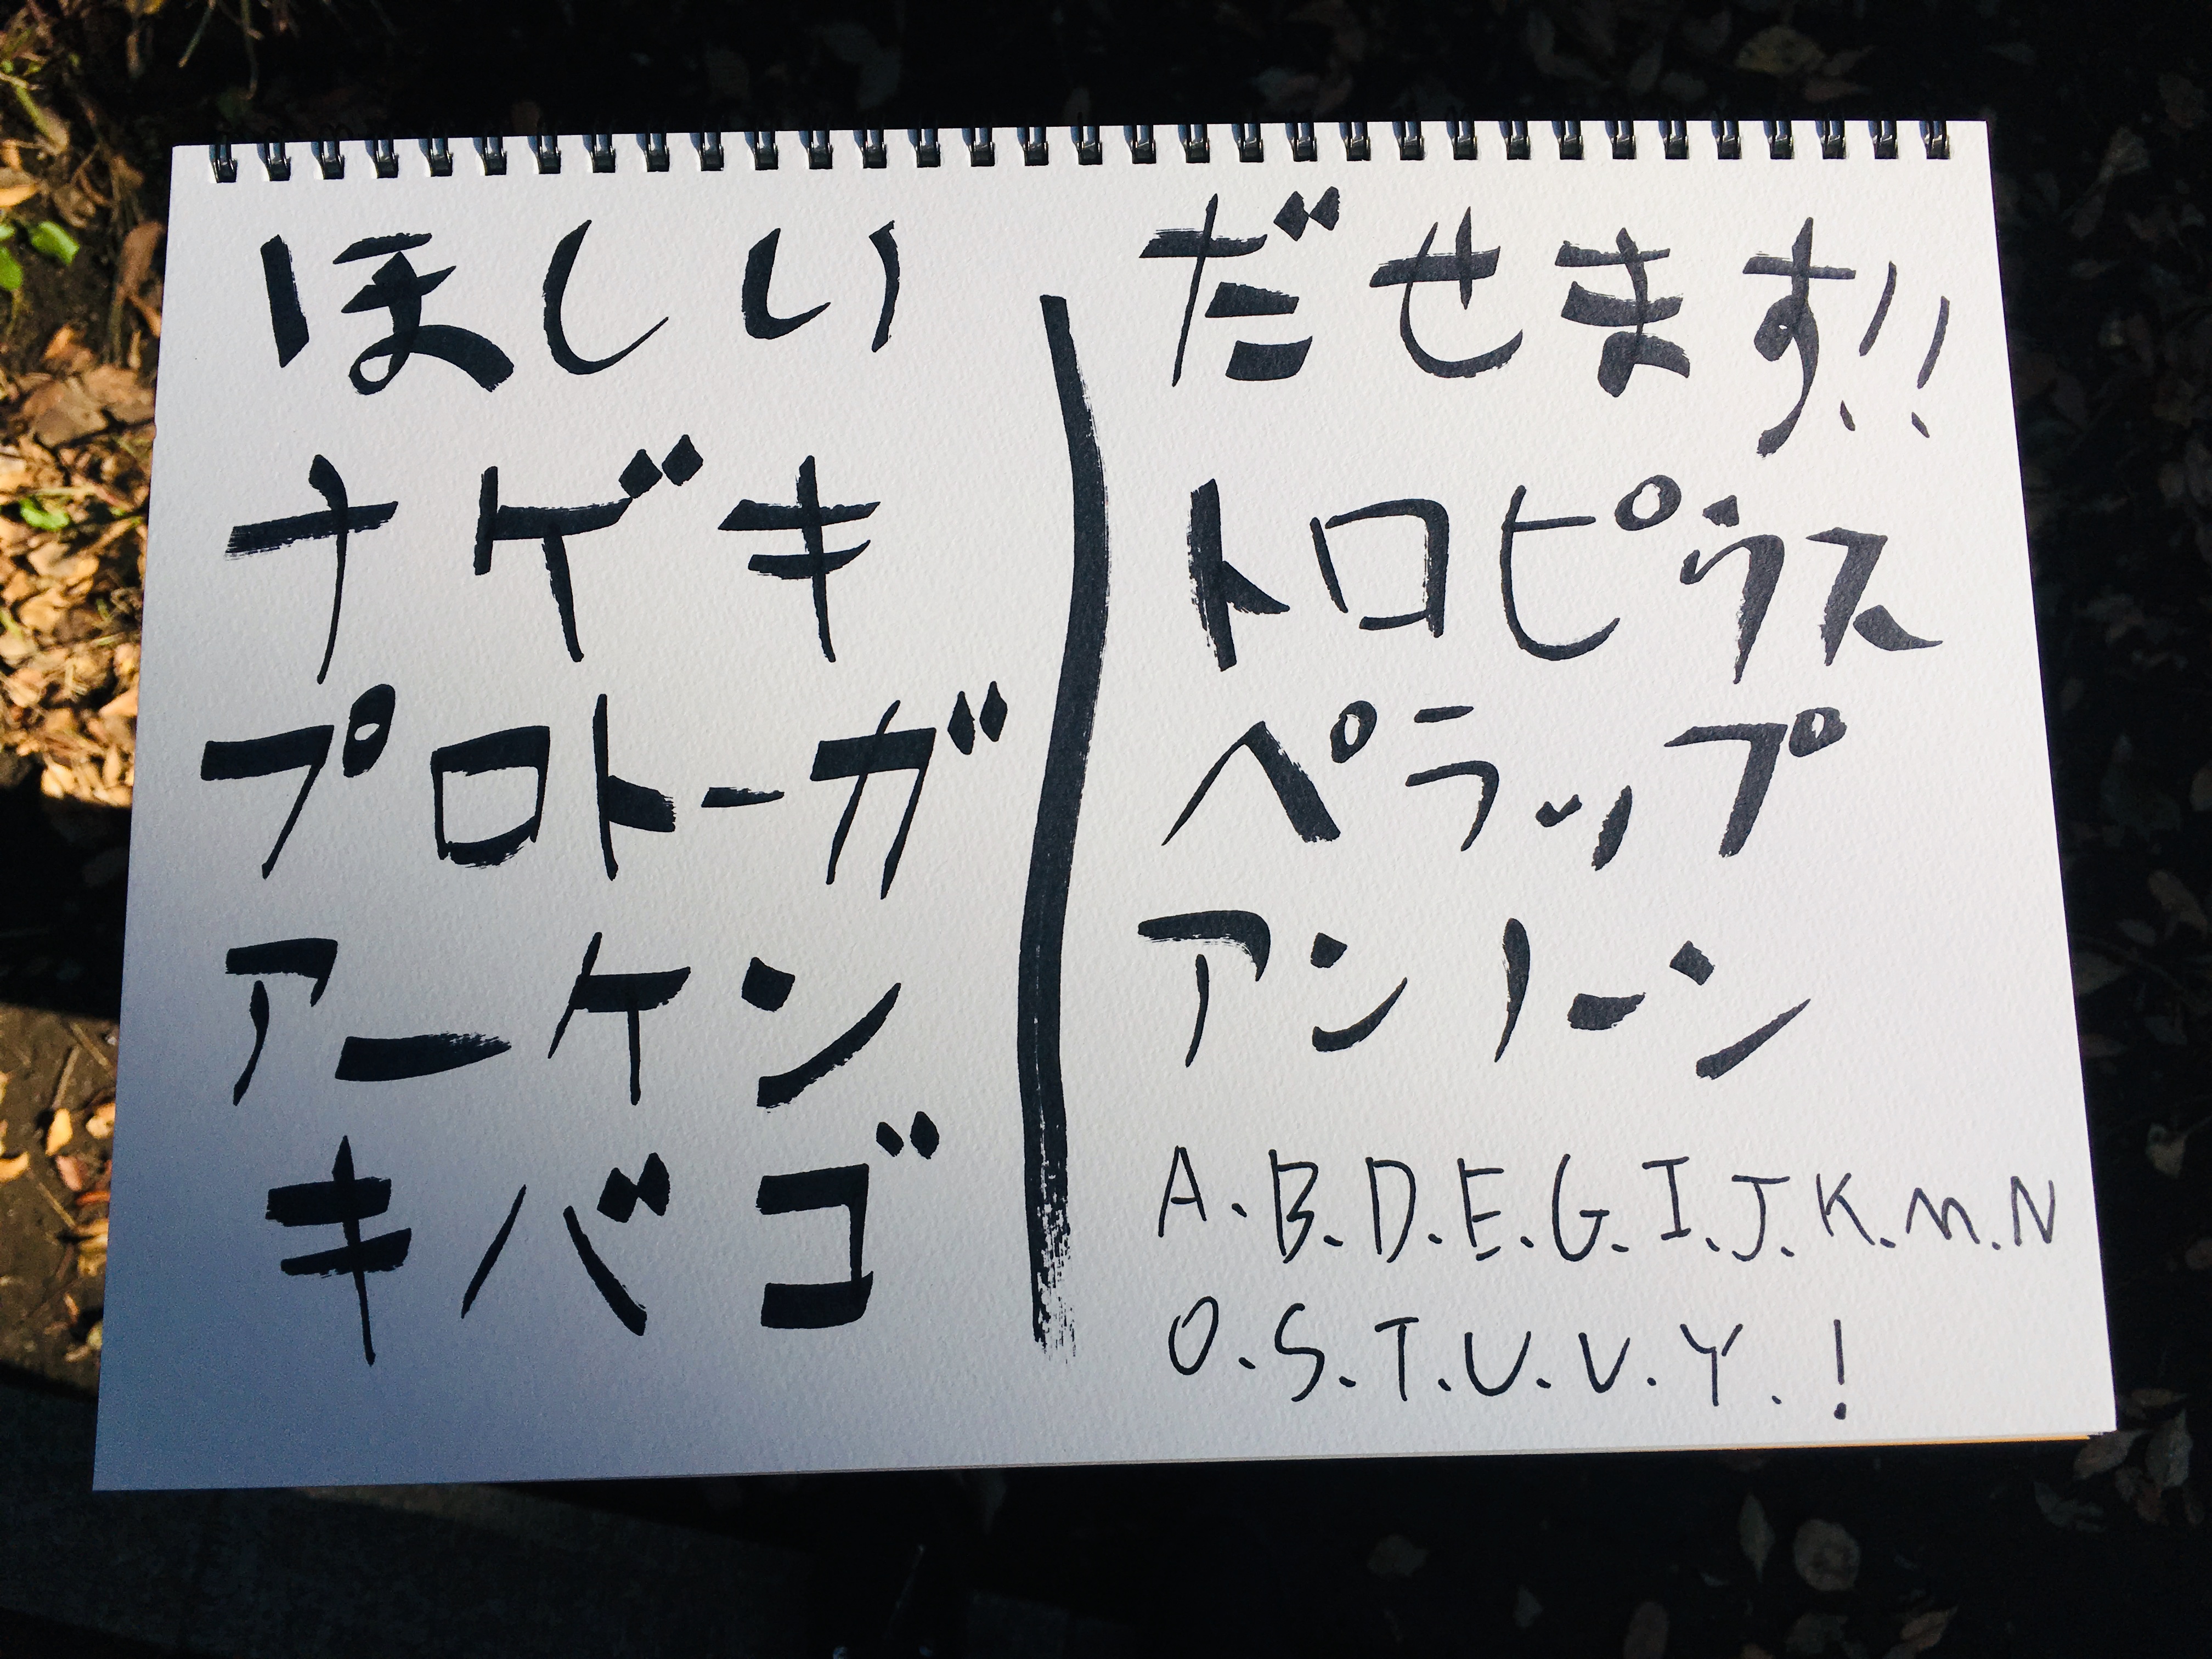 ほしい
ナゲキ
プロトーガ
アーケン
キバゴ
だせます!!
トロピウス
ペラップ
アンノーン
A.B.D.E.G.I.J.K.M.N
O.S.T.U.V.Y.!